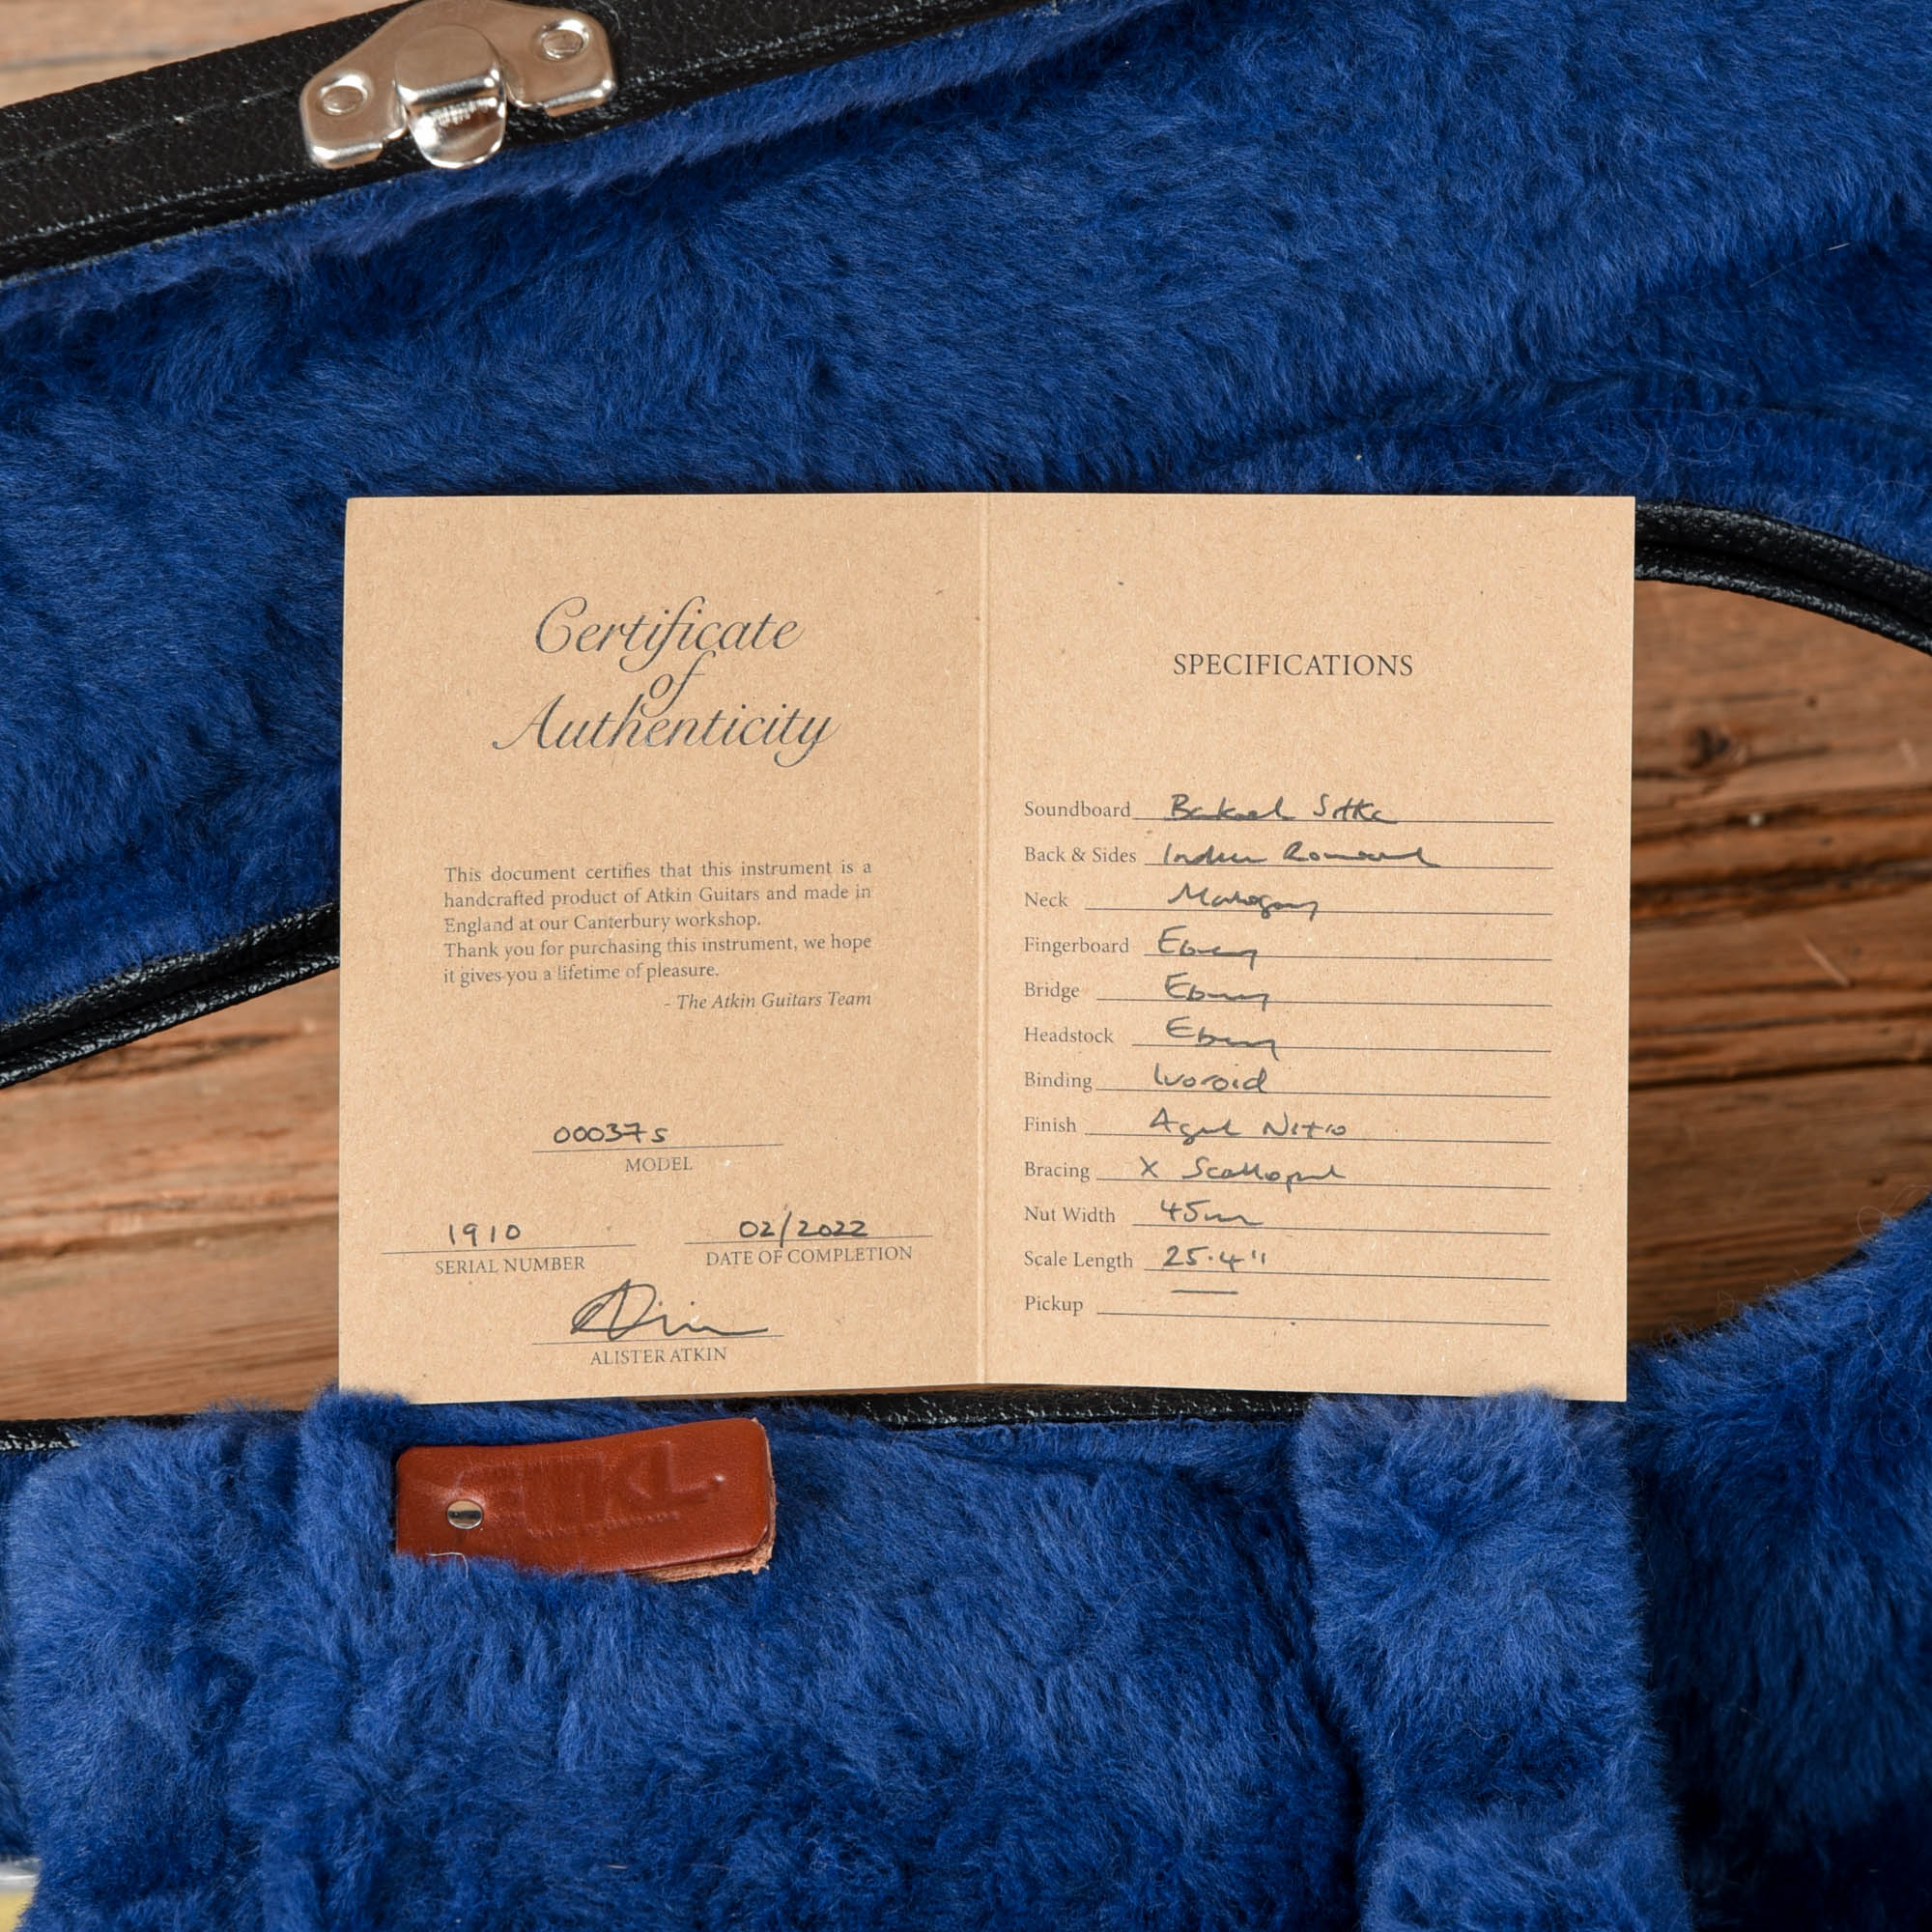 Certificate
of
Authenticity
This document certifies that this instrument is a
handcrafted product of Atkin Guitars and made in
England at our Canterbury workshop.
Thank you for purchasing this instrument, we hope
it gives you a lifetime of pleasure.
- The Atkin Guitars Team
00037s
MODEL
1910
SERIAL NUMBER
02/2022
DATE OF COMPLETION
ALISTER ATKIN
SPECIFICATIONS
Soundboard Baked Sitka
Back & Sides Indian Rosewood
Neck Mahogany
Fingerboard Ebony
Bridge Ebony
Headstock Ebony
Binding Ivoroid
Finish Aged Nitro
Bracing X Scalloped
Nut Width 45mm
Scale Length 25.4"
Pickup —